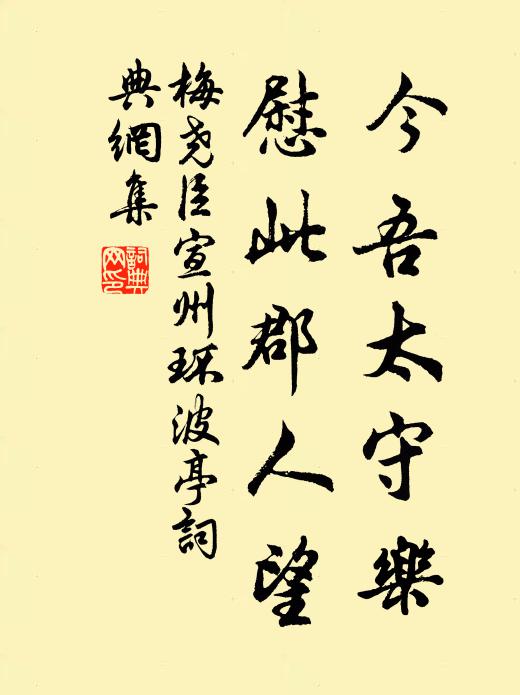 今吾太守樂
慰此郡人望
梅尧臣宣州环波亭詞
典網集
詞典网印